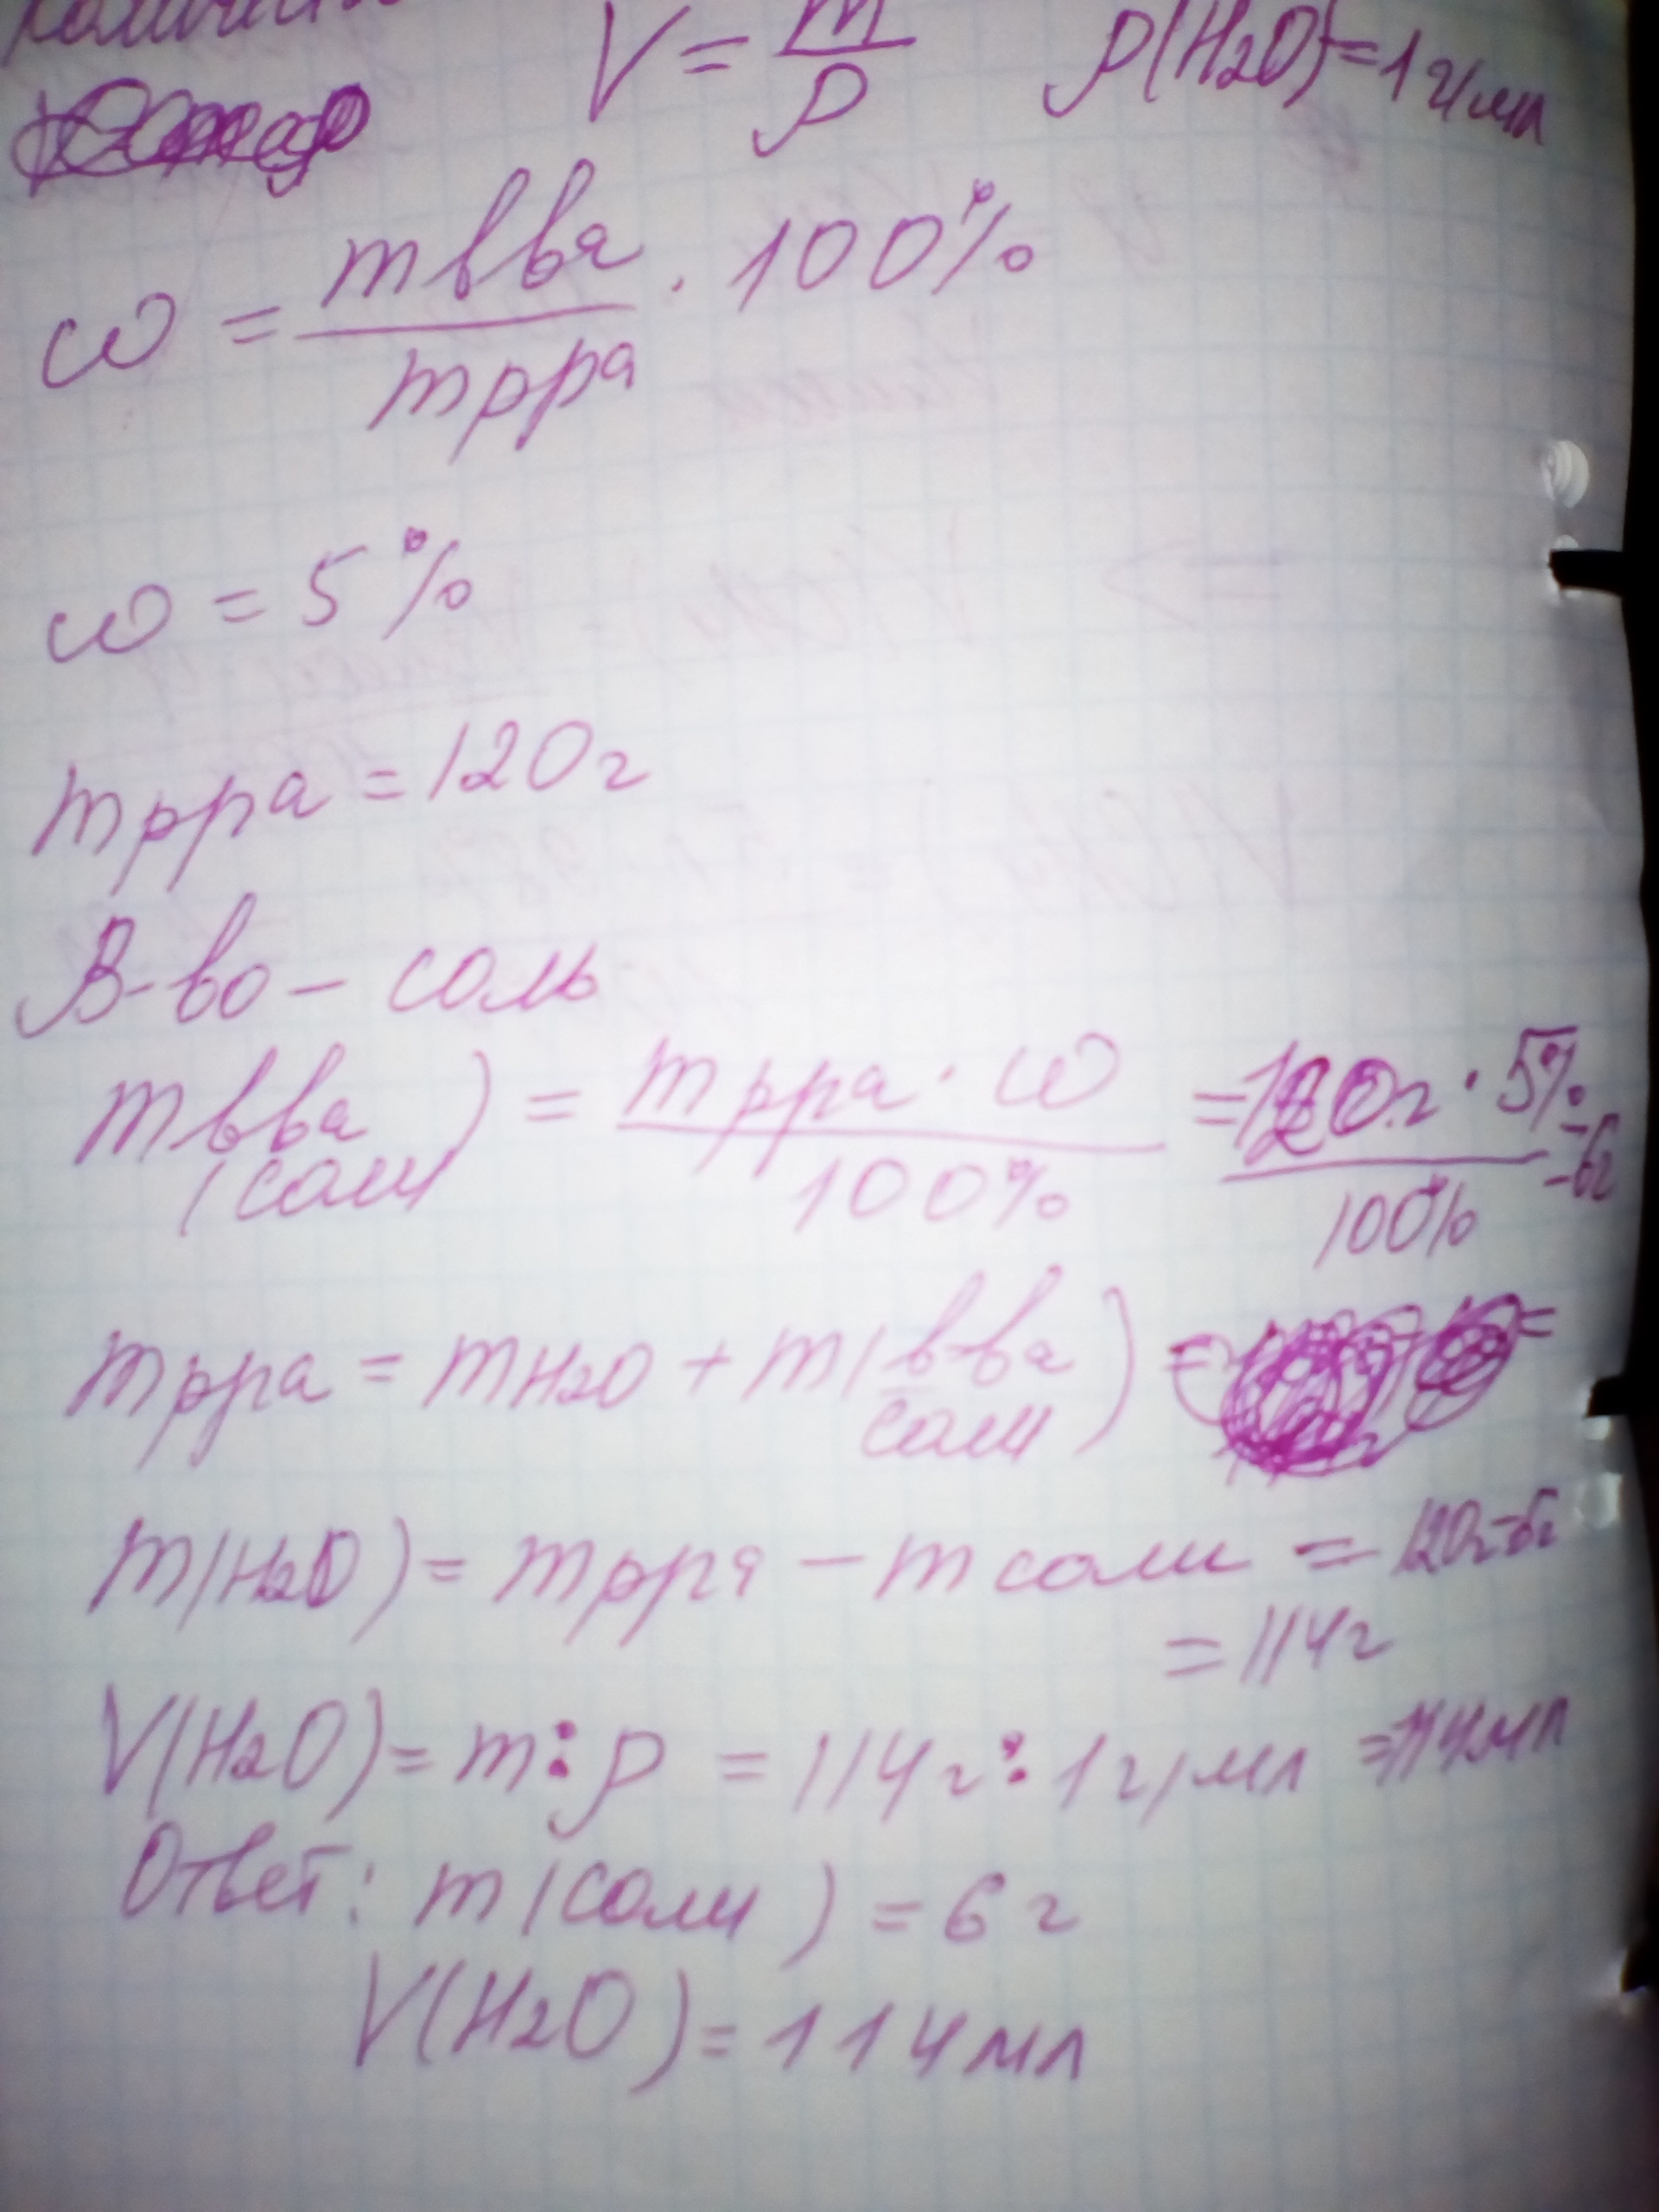 V = m/ρ ρ(H2O) = 1 г/мл
ω = mвва/mрра · 100%
ω = 5%
mрра = 120г
В-во - соль
mвва (соли) = mрра · ω / 100% = 120г · 5% / 100% = 6г
mрра = mH2O + m(в-ва соли) = =
m(H2O) = mрра - mсоли = 120г-6г
= 114г
V(H2O) = m : ρ = 114г : 1 г/мл = 114мл
Ответ: m(соли) = 6г
V(H2O) = 114мл